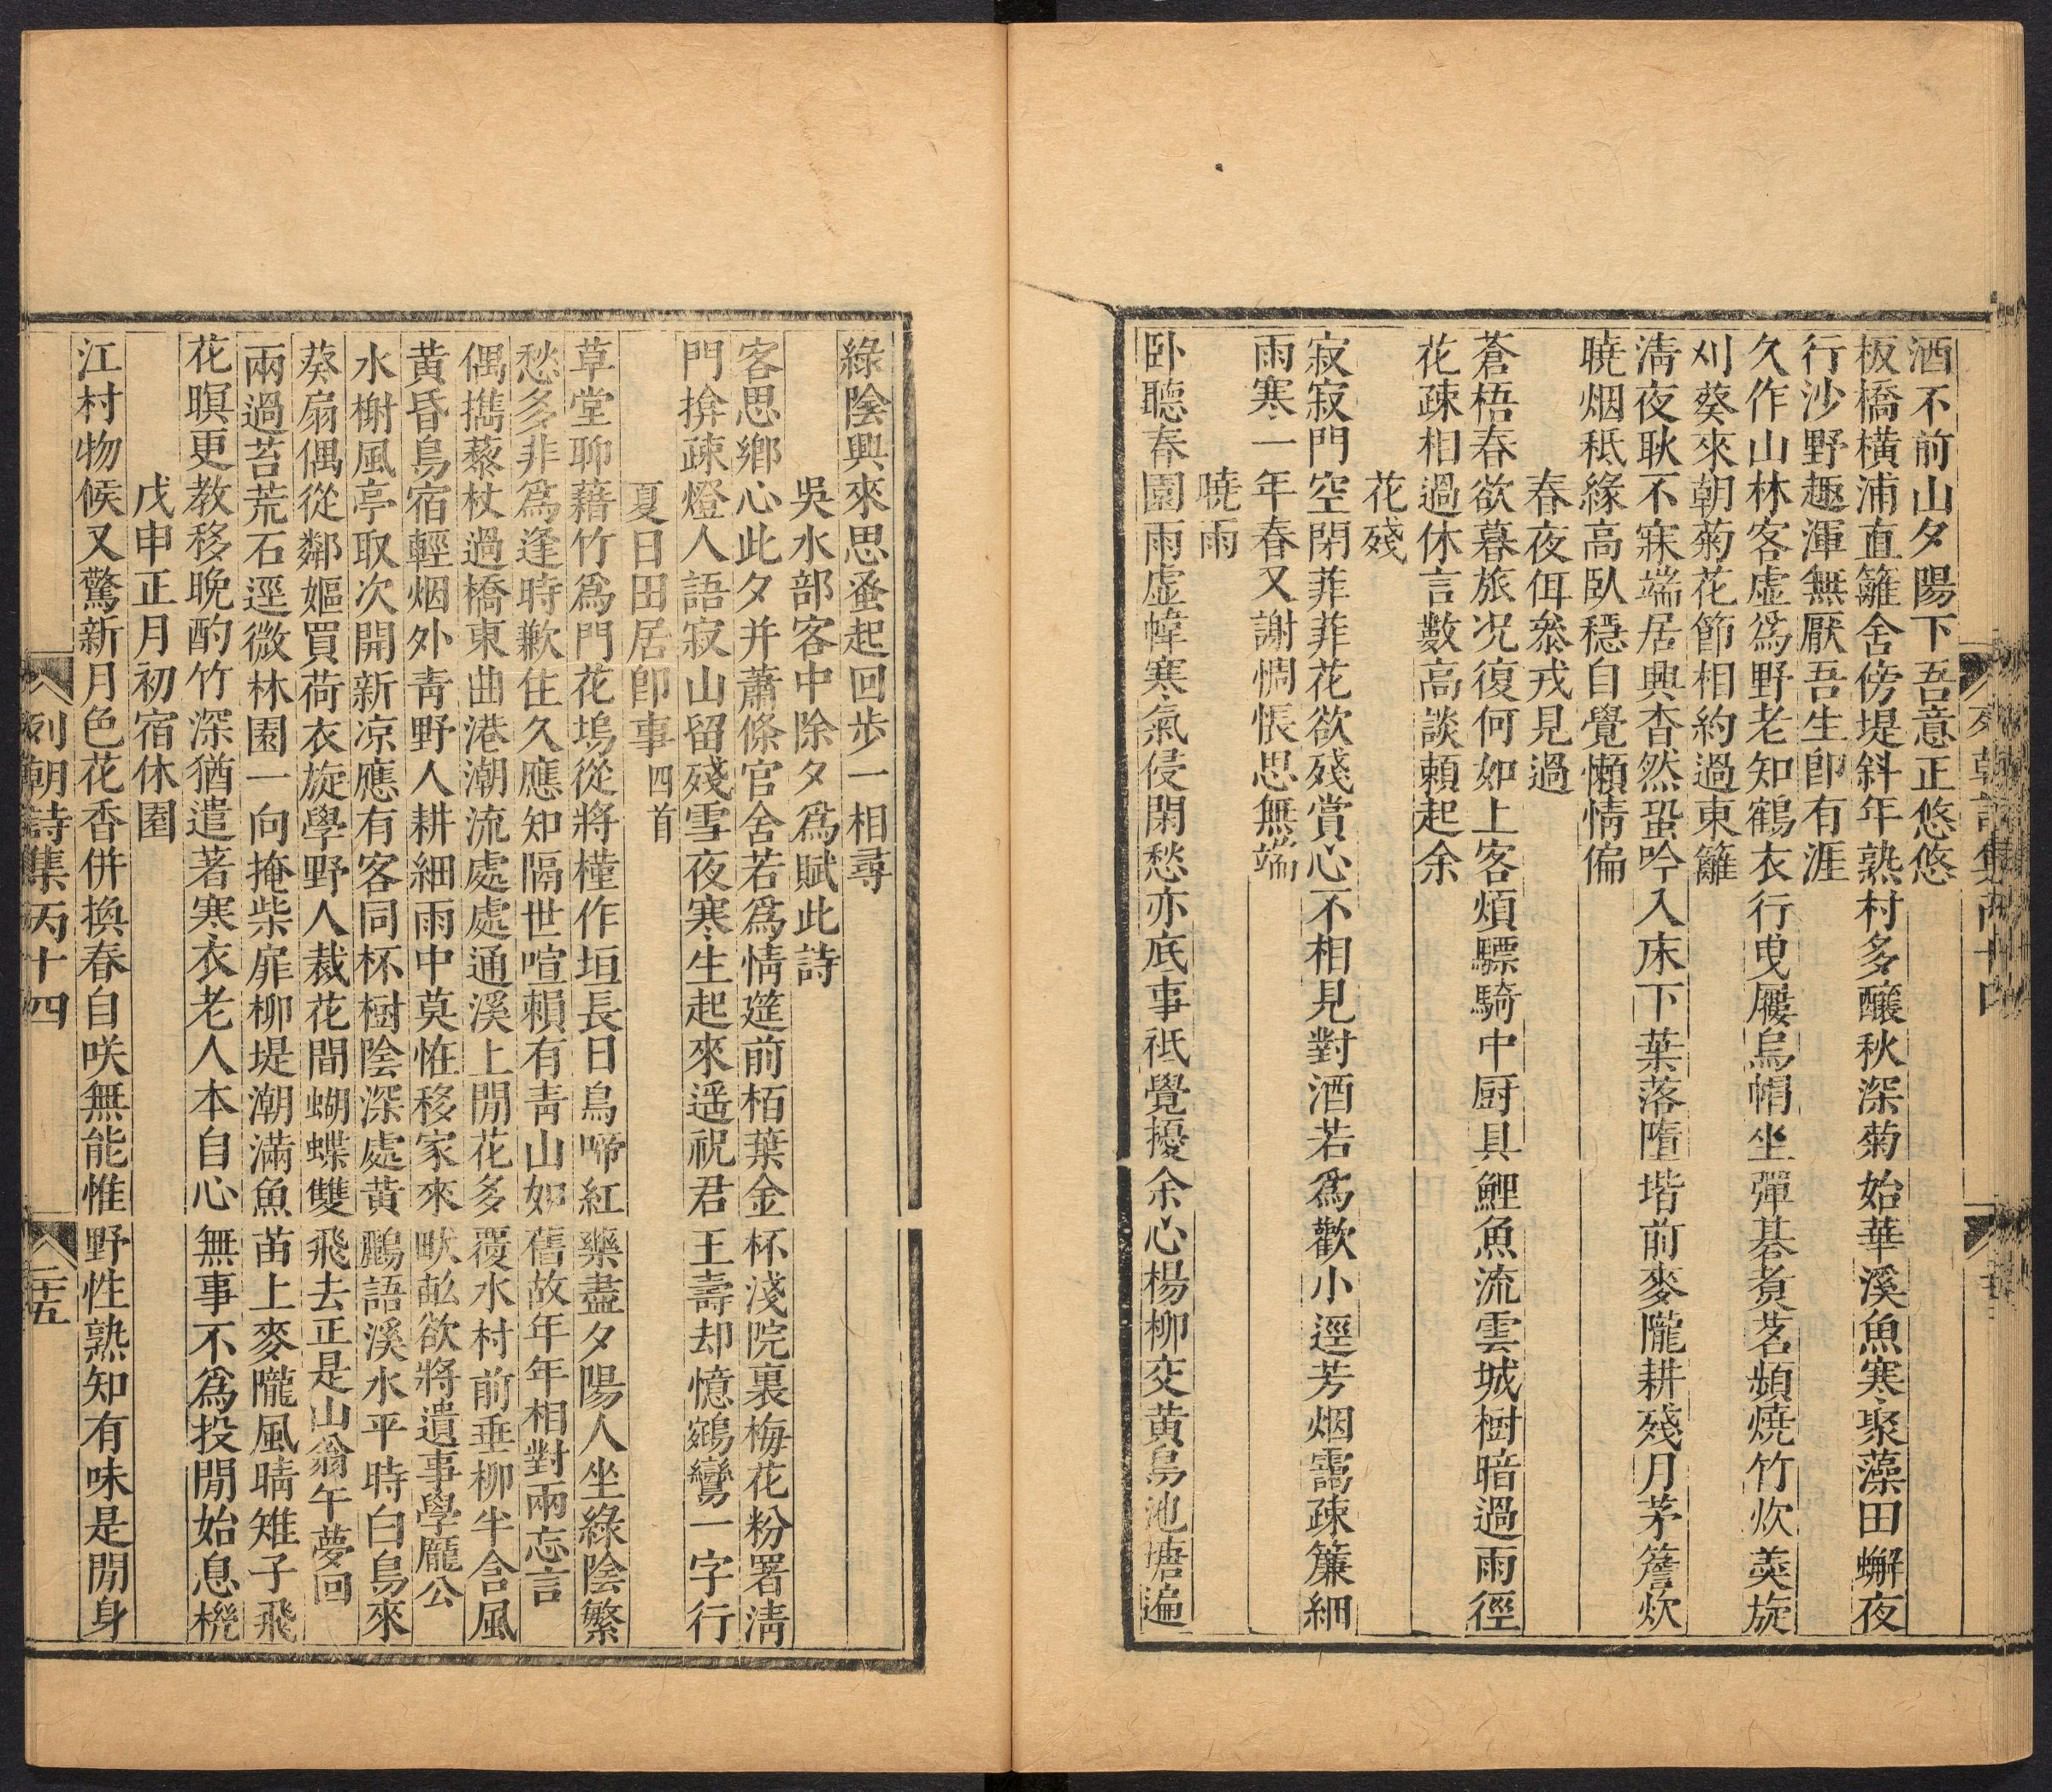 酒不前山夕陽下吾意正悠悠
板橋橫浦直籬舍傍堤斜年熟村多釀秋深菊始華溪魚寒聚藻田蠏夜
行沙野趣渾無厭吾生卽有涯
久作山林客虛爲野老知鶴衣行曳屨烏帽坐彈棊煮茗頻燒竹炊羮旋
刈葵來朝菊花節相約過東籬
淸夜耿不寐端居興杳然蛩吟入床下葉落墮堦前麥隴耕殘月茅簷炊
曉烟秪緣高臥穩自覺懶情偏
春夜佴叅戎見過
蒼梧春欲暮旅况復何如上客煩驃騎中厨具鯉魚流雲城樹暗過雨徑
花疎相過休言數高談賴起余
花殘
寂寂門空閉菲菲花欲殘賞心不相見對酒若爲歡小逕芳烟靄疎簾細
雨寒一年春又謝惆悵思無端
曉雨
卧聽春園雨虛幃寒氣侵閑愁亦底事祇覺擾余心楊柳交黃鳥池塘遍
綠陰興來思蚤起回步一相尋
吳水部客中除夕爲賦此詩
客思鄉心此夕并蕭條官舍若爲情筵前栢葉金杯淺院裏梅花粉署淸
門揜疎燈人語寂山留殘雪夜寒生起來遥祝君王壽却憶鵷鸞一字行
夏日田居卽事四首
草堂聊藉竹爲門花塢從將槿作垣長日鳥啼紅藥盡夕陽人坐綠陰繁
愁多非爲逢時歉住久應知隔世喧賴有靑山如舊故年年相對兩忘言
偶攜藜杖過橋東曲港潮流處處通溪上閒花多覆水村前垂柳半含風
黃昏鳥宿輕烟外靑野人耕細雨中莫恠移家來畎畝欲將遺事學龐公
水榭風亭取次開新凉應有客同杯樹陰深處黃鸝語溪水平時白鳥來
葵扇偶從鄰嫗買荷衣旋學野人裁花間蝴蝶雙飛去正是山翁午夢回
兩過苔荒石逕微林園一向掩柴扉柳堤潮滿魚苗上麥隴風晴雉子飛
花暝更教移晩酌竹深猶遣著寒衣老人本自心無事不爲投閒始息機
戊申正月初宿休園
江村物候又驚新月色花香併換春自咲無能惟野性熟知有味是閒身
列朝詩集丙十四
二十五